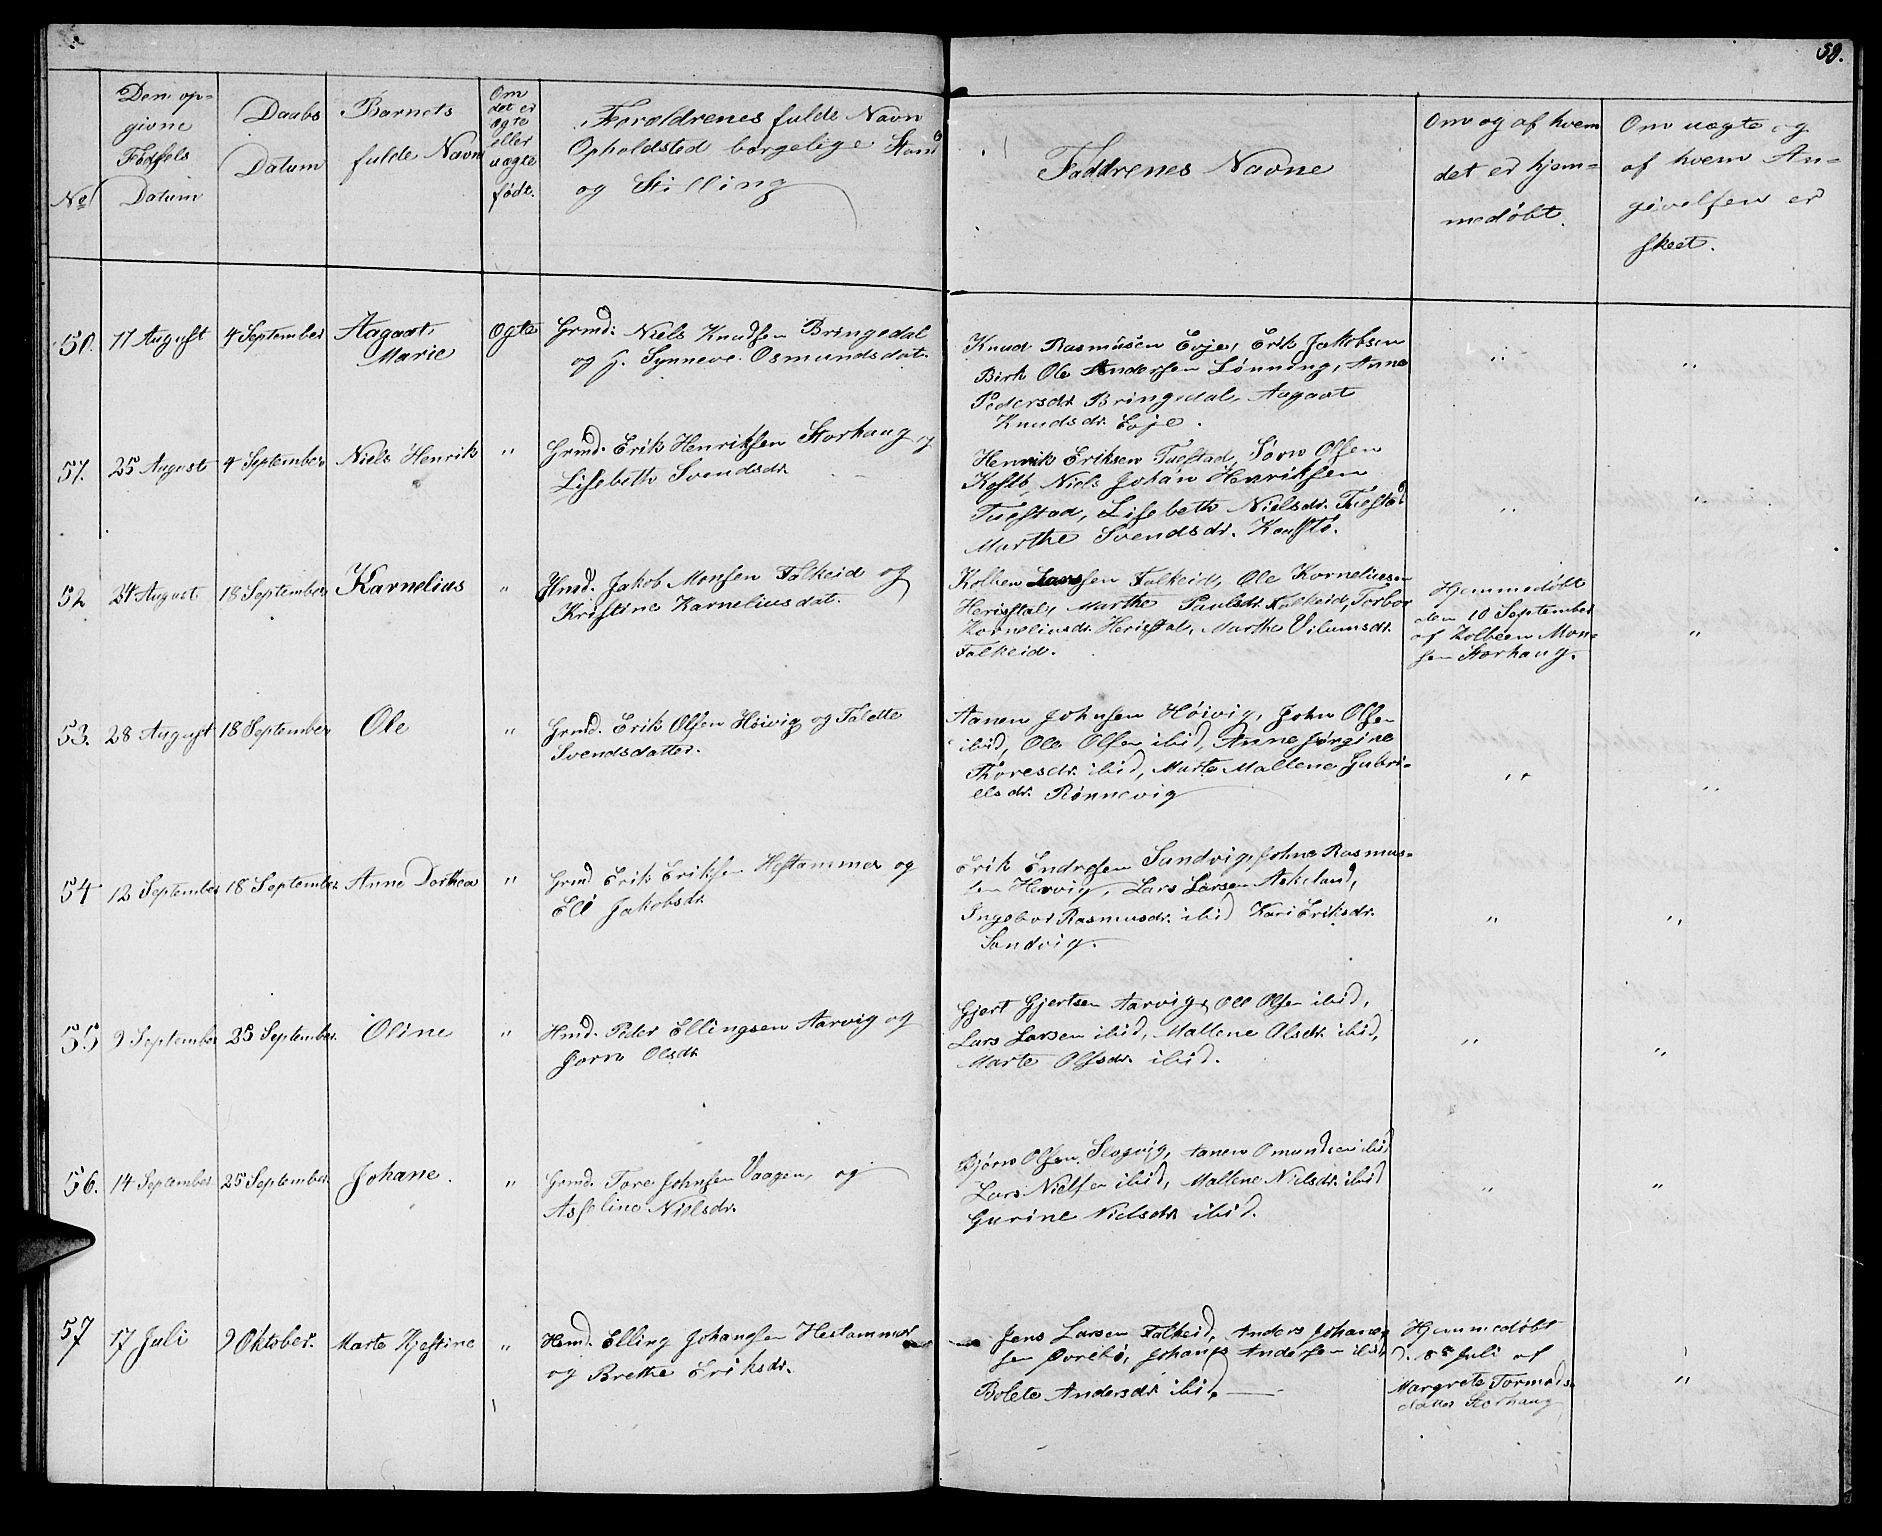 59.
No
Den op-
givne
Födsels
Datum
Daabs
Datum
Barnets
fulde Navn
Om
det er
ægte
eller
uægte
föde.
Foraldrenes fulde Navn
Opholdsted borgelige Stand
og Stilling
Faddrenes Navne
Om og af hvem
det er hjem-
medöbt.
Om uægte og
af hvem An-
givelsen er
skeet.
50. 17 August 4 September Aagaat
Marie
Ogte
Grmd: Niels Knudsen Bringedal
og H. Synneve Osmundsdat.
Knud Rasmusen Evje, Erik Jakobsen
Birk Ole Andersen Lönning, Anne
Pedersdr. Bringedal, Aagaat
Knudsdr. Evje.
" "
51. 25 August 4 September Niels Henrik "
Grmd. Erik Henriksen Storhaug og
Lisebeth Svendsdr.
Henrik Eriksen Tuestad, Sörn Olsen
Niels Johan Henriksen
Tuestad, Lisebeth Nielsdr. Tuestad
Marthe Svendsdr.
" "
52 24 August 18 September Karnelius "
Hmd. Jakob Monsen Falkeid og
Kristine Karneliusdat.
Kolben Larssen Falkeid, Ole Korneliusen
Heristal, Marthe Paulsdr. Falkeid, Torbor
Korneliusdr. Heristal, Marthe Vilumsdr.
Falkeid.
Hjemmedöbt
den 10 September
af Kolbeen Mon-
sen Storhaug.
"
53. 28 August 18 September Ole "
Grmd. Erik Olsen Höivig og Talette
Svendsdatter.
Aanen Johnsen Höivig, John Olsen
ibid, Ole Olsen ibid, Anne Jörgine
Thoresdr. ibid, Marte Mallene Gabri-
elsdr. Rönnevig
" "
54 12 September 18 September Anne Dorthea "
Grmd Erik Eriksen Hestammer og
Eli Jakobsdr.
Erik Endresen Sandvig, Johne Rasmus-
sen Hervig, Lars Larsen Askeland,
Ingebor Rasmusdr. ibid Kari Eriksdr.
Sandvig.
" "
55 9 September 25 September. Oline "
Hmd. Peder Ellingsen Aarvig og
Jorn Olsdr.
Gjert Gjertsen Aarvig, Ole Olsen ibid,
Lars Larsen ibid, Mallene Olsdr. ibid,
Marte Olsdr. ibid.
" "
56. 14 September 25 September. Johane. "
Grmd. Tore Johnsen Vaagen, og
Asseline Nielsdr.
Björn Olsen Slogvig, Aanen Omundsen ibid
Lars Nielsen ibid, Mallene Nielsdr. ibid
Gurine Nielsdr. ibid.
" "
57 17 Juli 9 Oktober. Marte Kjestine "
Hmd. Elling Johansen Hestammer
og Brethe Eriksdr.
Jens Larsen Falkeid, Anders Johan-
sen Johanes Andersen ibid,
Bolete Andersdr. ibid,
Hjemmedöbt
d. 18 Juli af
Margrete Tormods-
datter Storhaug
"